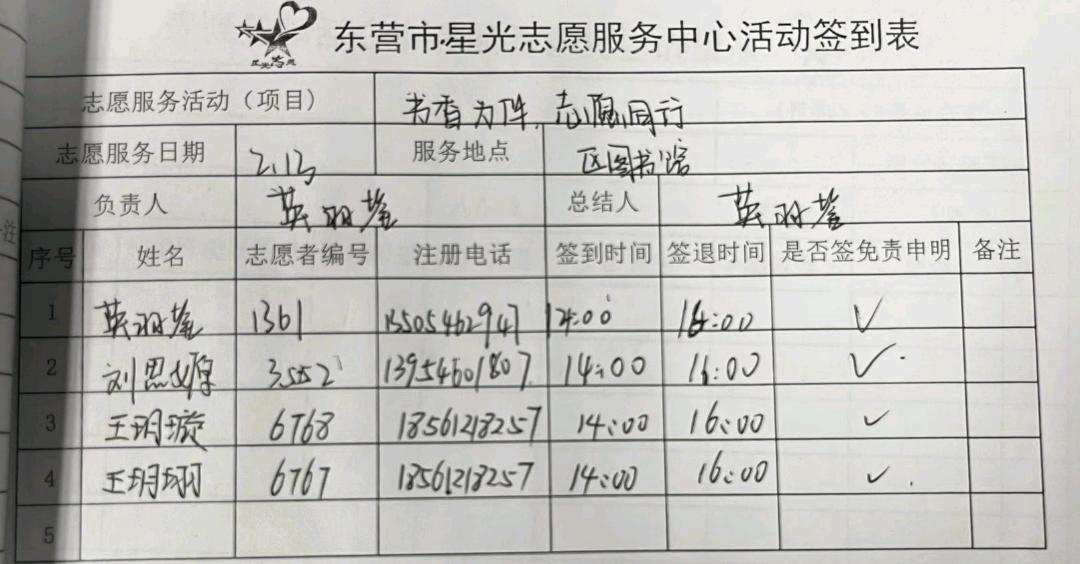 东营市星光志愿服务中心活动签到表
志愿服务活动（项目） 书香为伴，志愿同行
志愿服务日期 2.13 服务地点 区图书馆
负责人 英羽 总结人 英羽
序号 姓名 志愿者编号 注册电话 签到时间 签退时间 是否签免责申明 备注
1 英羽 1361 13505462947 14:00 16:00 ✓
2 刘思媛 3552 13954601807 14:00 16:00 ✓
3 王玥璇 6768 18561218257 14:00 16:00 ✓
4 王玥翊 6767 18561218257 14:00 16:00 ✓
5